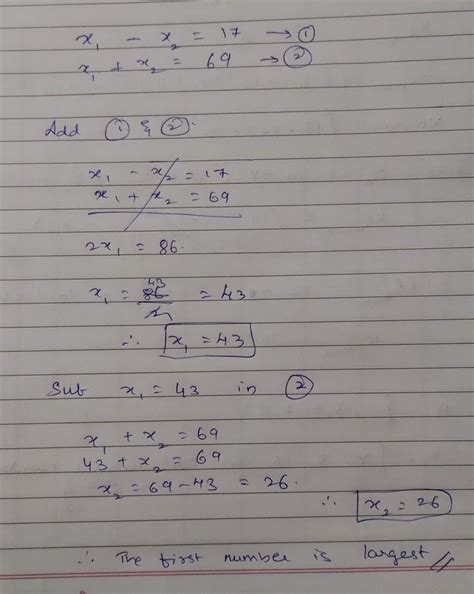 x₁ - x₂ = 17 → ①
x₁ + x₂ = 69 → ②
Add ① & ②.
x₁ - x₂ = 17
x₁ + x₂ = 69
2x₁ = 86.
43
x₁ = 86/2 = 43
∴ x₁ = 43
Sub x₁ = 43 in ②
x₁ + x₂ = 69
43 + x₂ = 69
x₂ = 69 - 43 = 26.
∴ x₂ = 26
∴ The first number is largest //